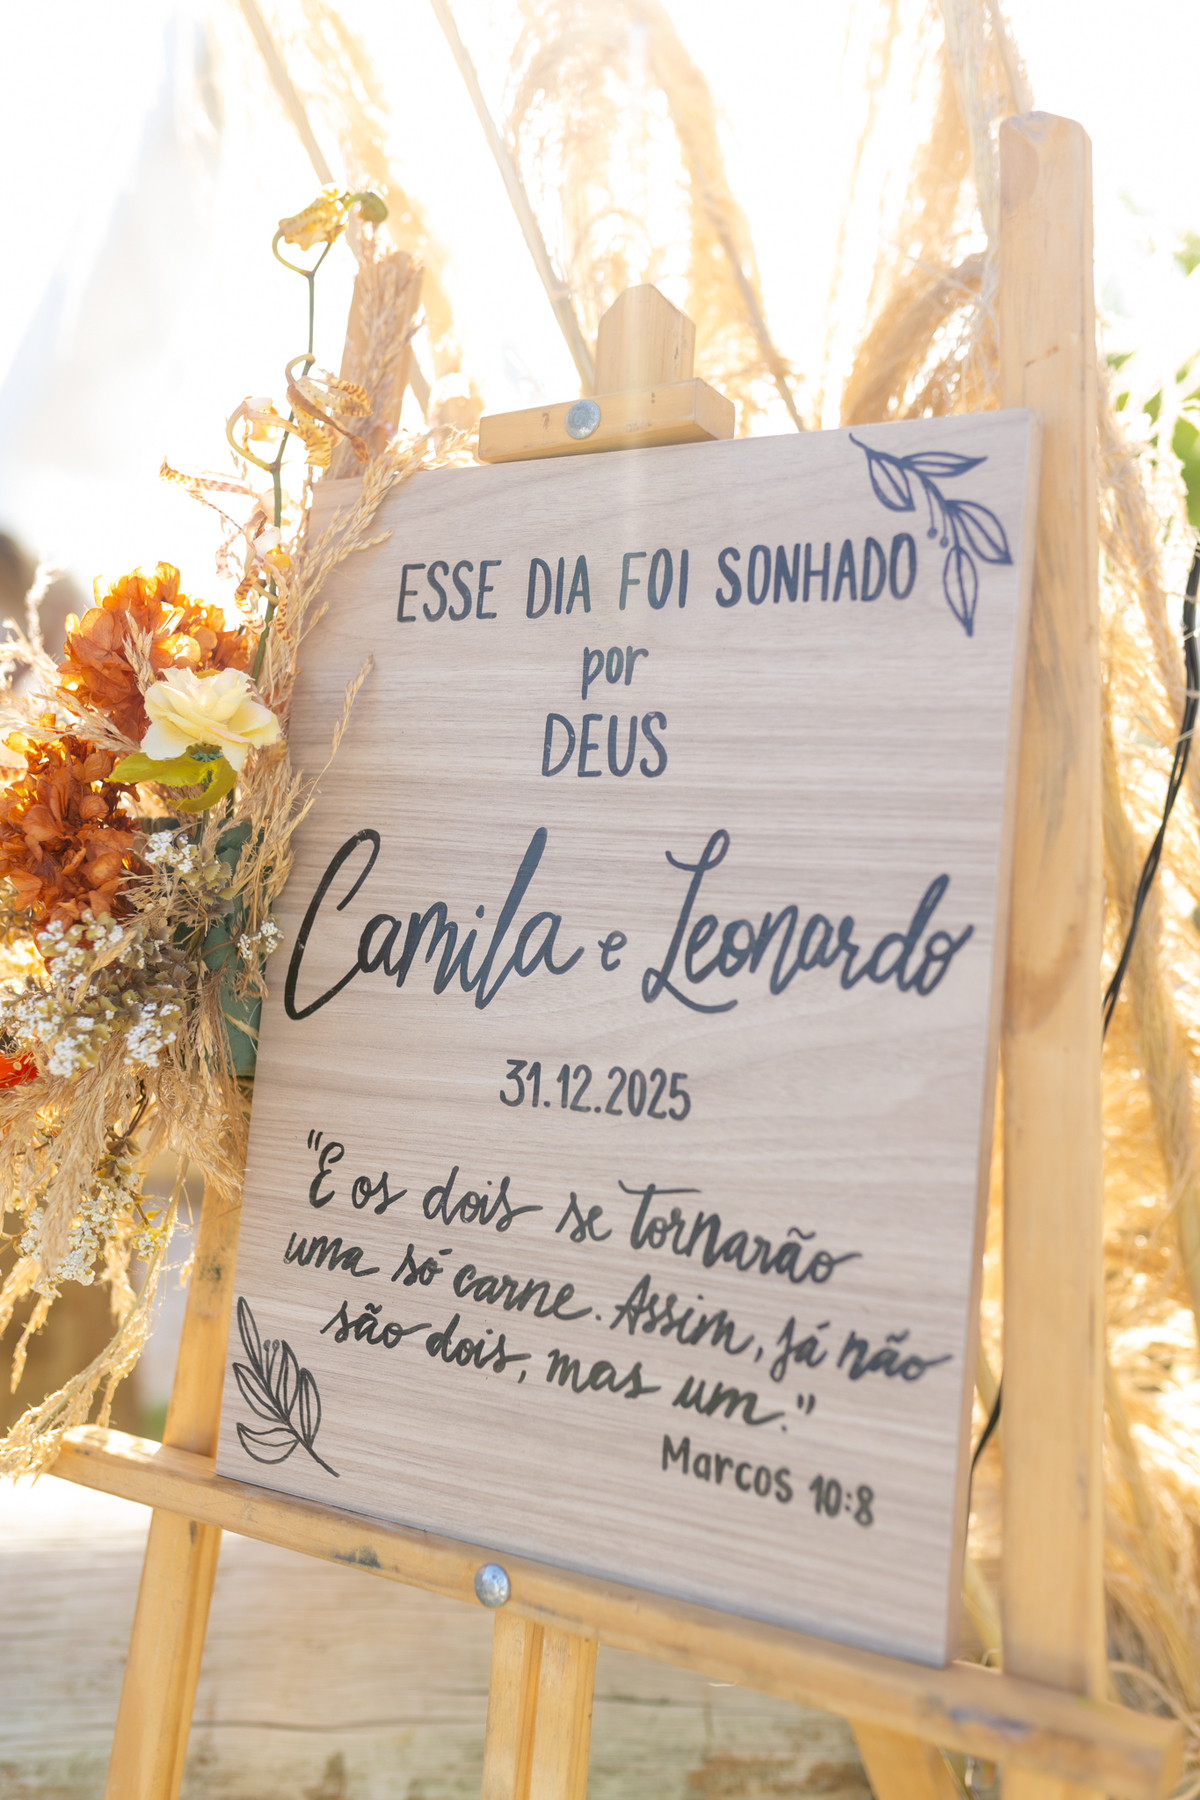 ESSE DIA FOI SONHADO
por
DEUS
Camila e Leonardo
31.12.2025
"E os dois se tornarão
uma só carne. Assim, já não
são dois, mas um."
Marcos 10:8